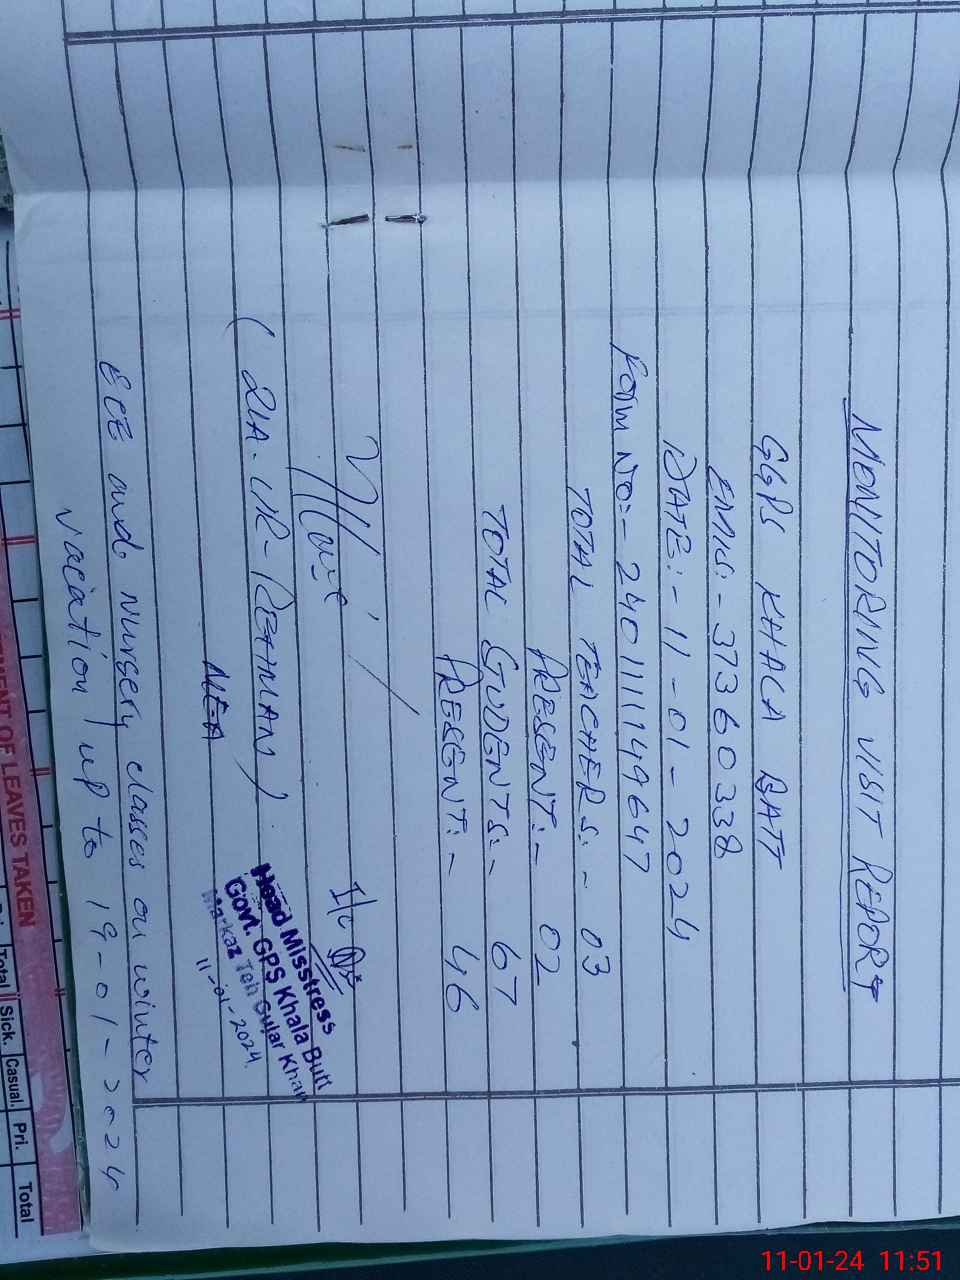 MONITORING VISIT REPORT
GGPS KHALA BATT
EMIS:- 37360338
DATE:- 11-01-2024
FORM NO:- 2401111149647
TOTAL TEACHERS:- 03
PRESENT:- 02
TOTAL STUDENTS:- 67
PRESENT:- 46
I/C
(ZIA-UR-REHMAN)
MEA
Head Misstress
Govt. GPS Khala Butt
Markaz Teh Gujar Khan
11-01-2024
ECE and nursery classes on winter
vacation up to 19-01-2024
MENT OF LEAVES TAKEN
Total Sick. Casual. Pri. Total
11-01-24 11:51